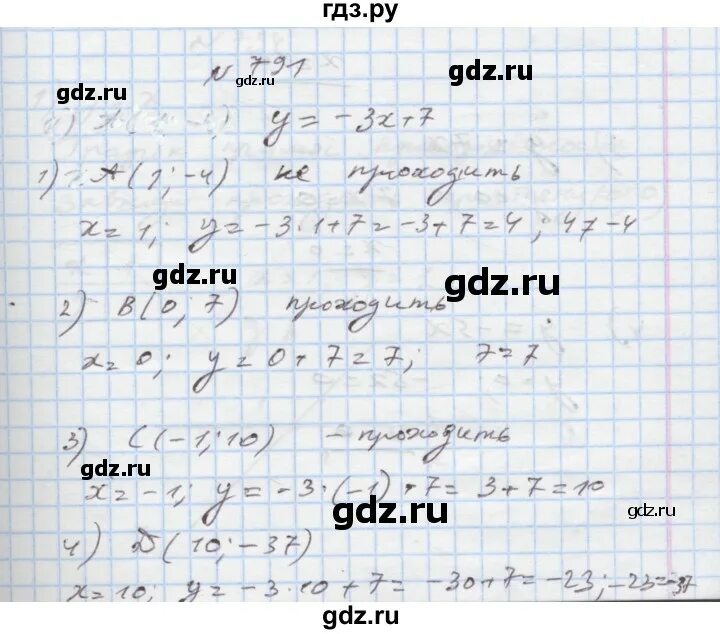 гдз.ру
N 791
gdz.ru gdz.ru
y = -3x+7
1) A(1; -4) не проходить
x = 1; y = -3·1+7 = -3+7 = 4; 4≠-4
gdz.ru gdz.ru
2) B(0; 7) проходить
x = 0; y = 0+7 = 7; 7=7
3) C(-1; 10) - проходить
gdz.ru
x = -1; y = -3·(-1)+7 = 3+7 = 10
gdz.ru gdz.ru
4) D(10; -37)
x = 10; y = -3·10+7 = -30+7 = -23; -23 = -37
gdz.ru
gdz.ru